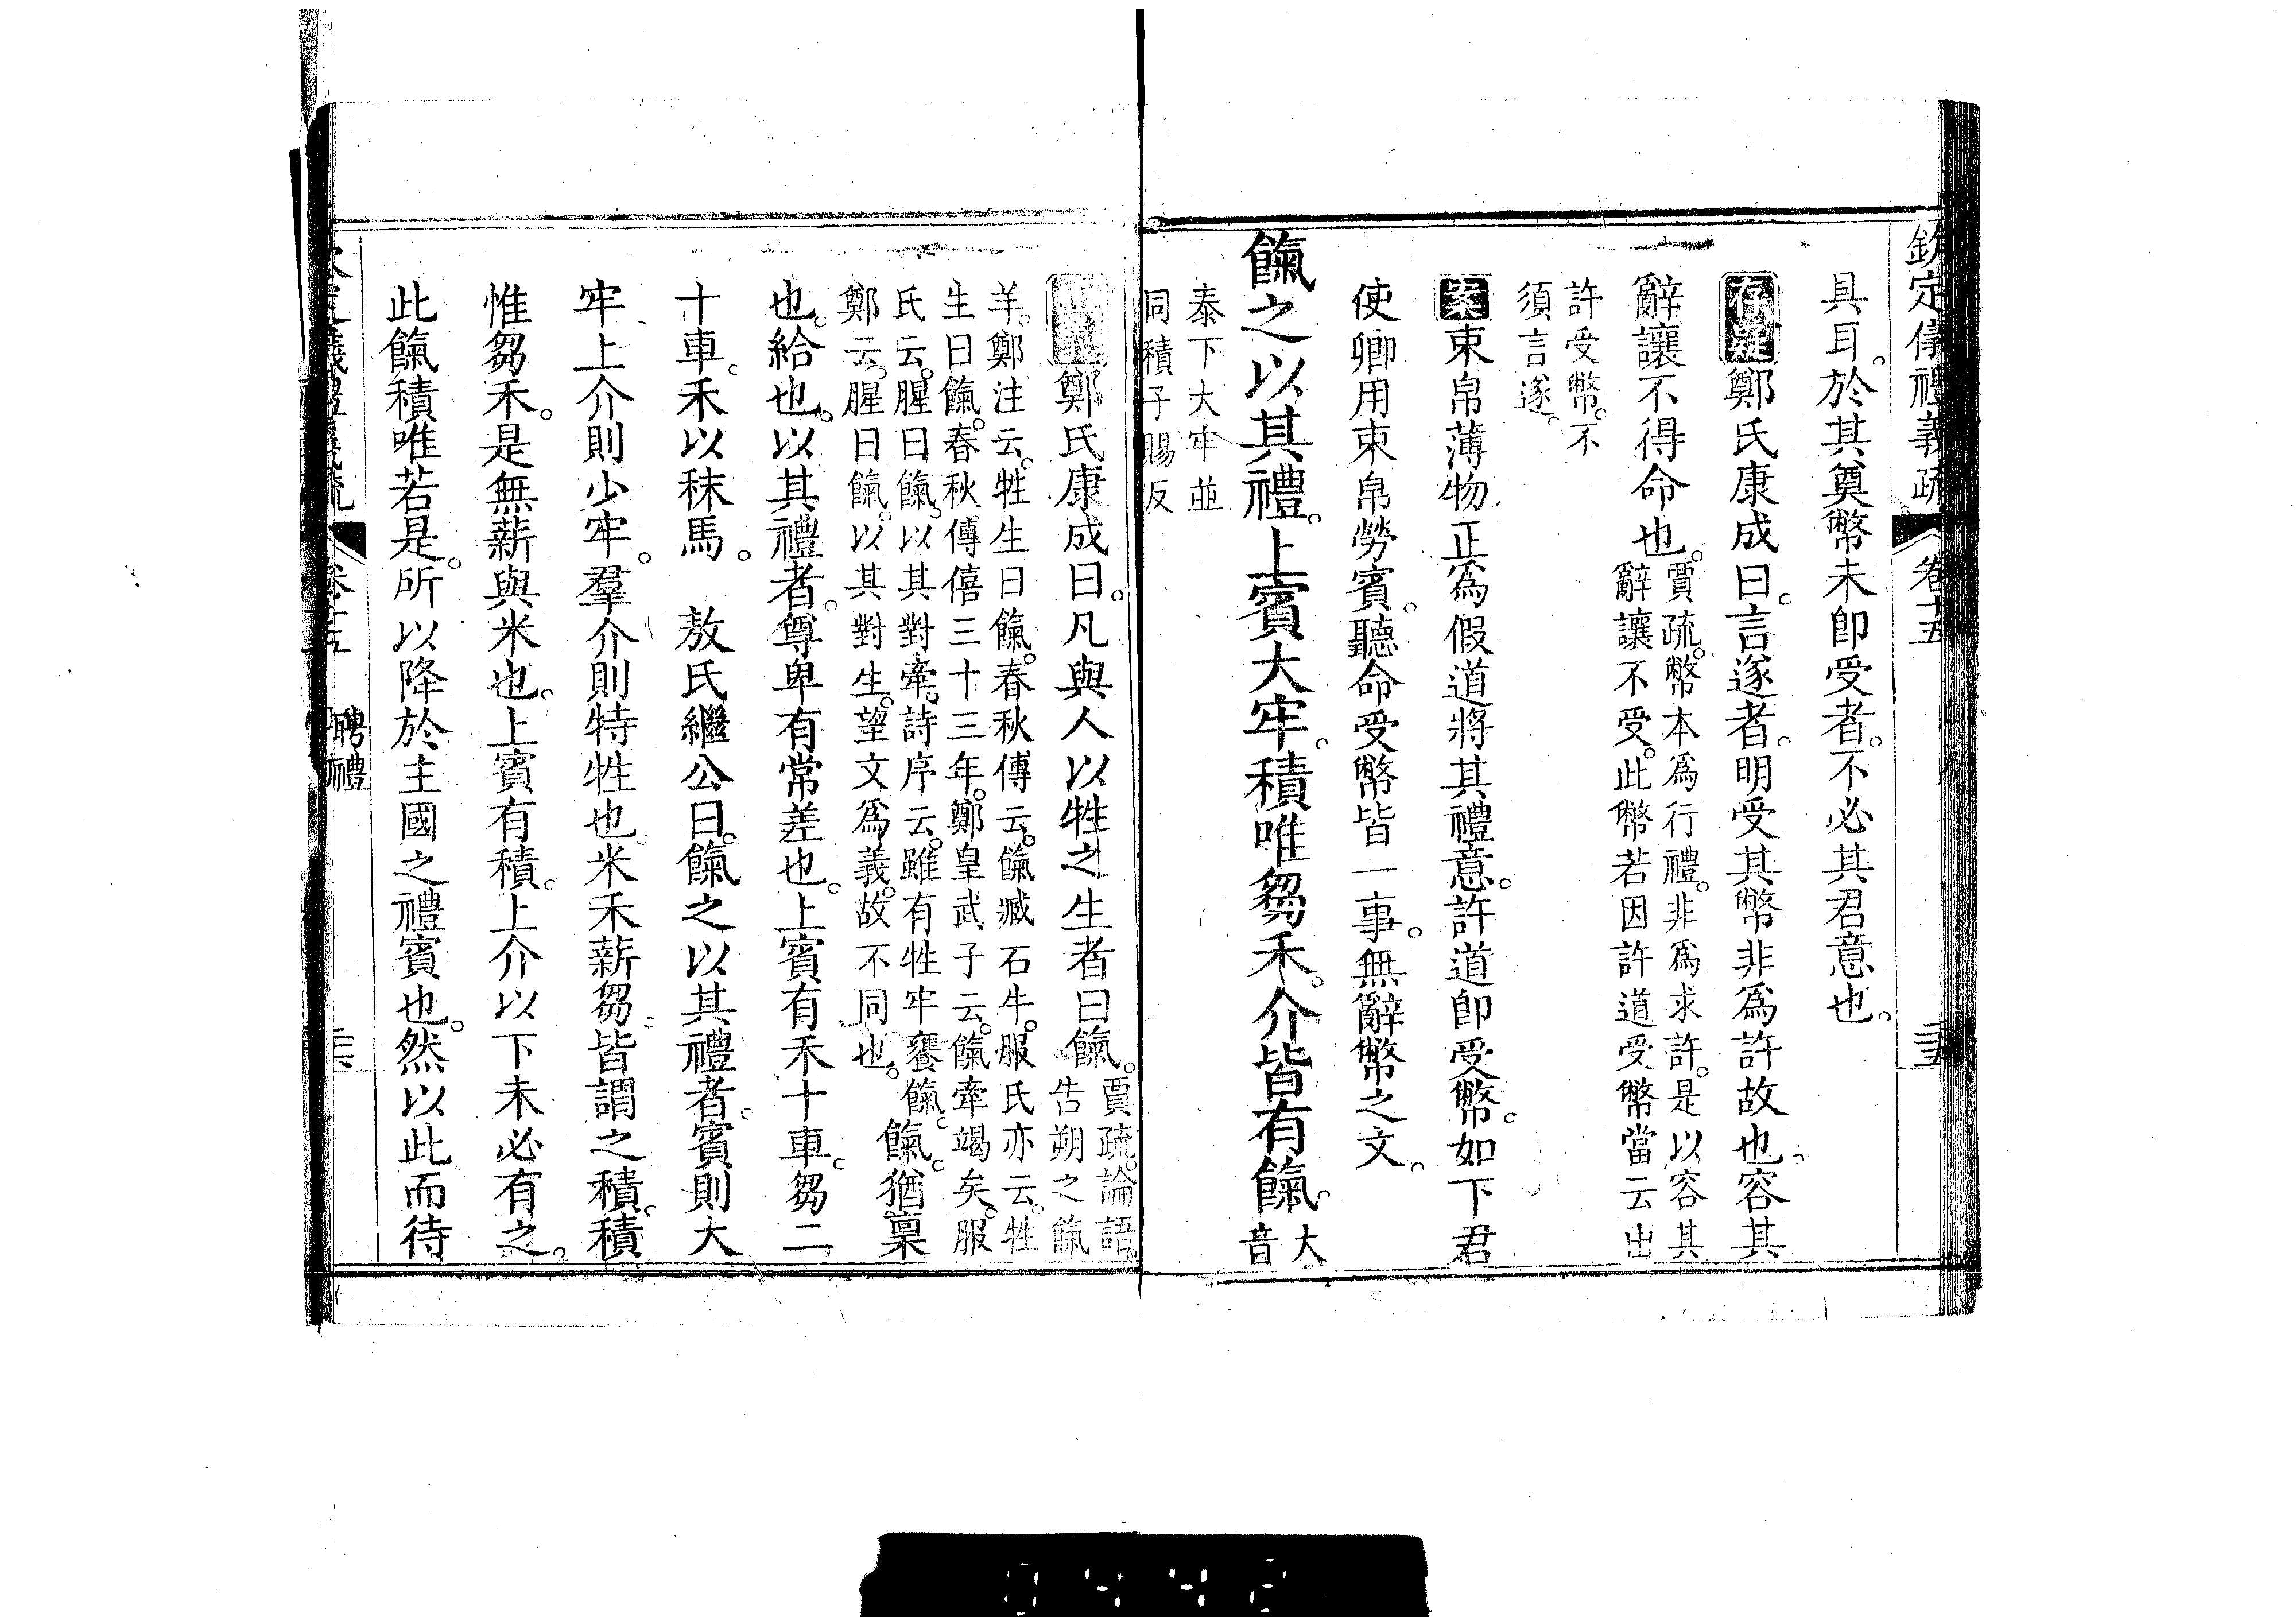 欽定儀禮義疏 卷十五 二十五
具耳。於其奠幣未卽受者。不必其君意也。
存疑鄭氏康成曰。言遂者。明受其幣非爲許故也。容其
辭讓不得命也。賈疏。幣本爲行禮。非爲求許。是以容其
辭讓不受。此幣若因許道受幣當云出
許受幣。不
須言遂。
案束帛薄物正爲假道將其禮意。許道卽受幣。如下君
使卿用束帛勞賓。聽命受幣皆一事。無辭幣之文。
餼之以其禮。上賓大牢。積唯芻禾。介皆有餼。大
音
泰下大牢並
同積子賜反
鄭氏康成曰。凡與人以牲之生者曰餼。賈疏。論語。
告朔之餼
羊。鄭注云。牲生曰餼。春秋傳云。餼臧石牛。服氏亦云。牲
生曰餼。春秋傳僖三十三年。鄭皇武子云。餼牽竭矣。服
氏云。腥曰餼。以其對牽。詩序云。雖有牲牢饔餼。
鄭云。腥曰餼。以其對生。望文爲義。故不同也。餼猶稟
也。給也。以其禮者。尊卑有常差也。上賓有禾十車。芻二
十車。禾以秣馬。 敖氏繼公曰。餼之以其禮者。賓則大
牢上介則少牢。羣介則特牲也。米禾薪芻皆謂之積。積
惟芻禾。是無薪與米也。上賓有積。上介以下未必有之。
此餼積唯若是。所以降於主國之禮賓也。然以此而待
卷十五 聘禮